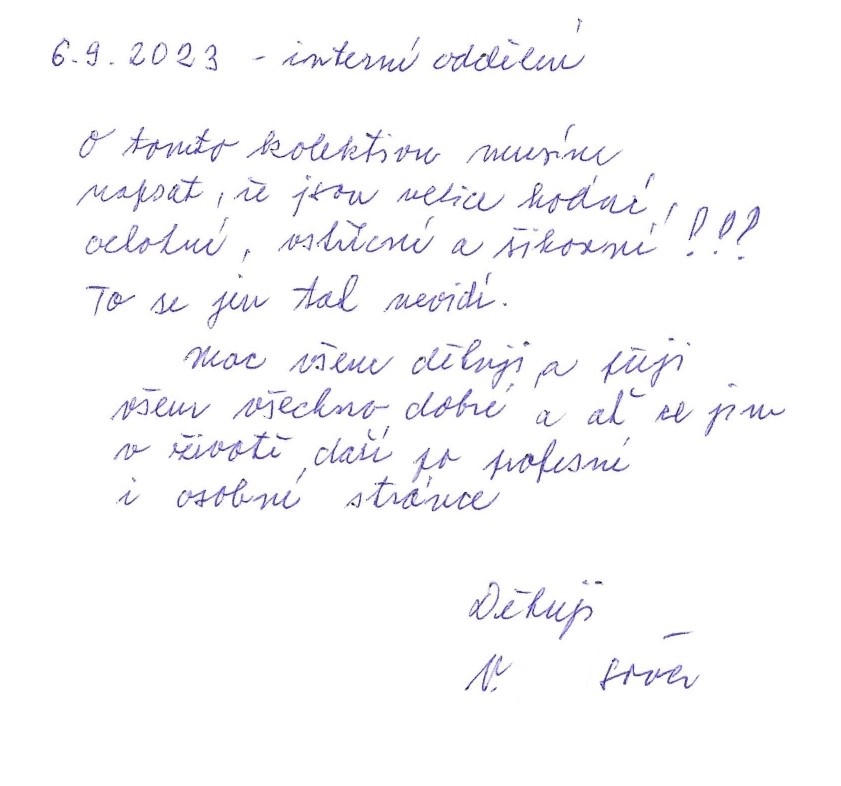 6.9.2023 - interní oddělení
O tomto kolektivu musíme
napsat, že jsou velice hodní,
ochotní, vstřícní a šikovní !!!
To se jen tak nevidí.
Moc všem děkuji a přeji
všem všechno dobré a ať se jim
v životě daří po profesní
i osobní stránce
Děkuji
V.